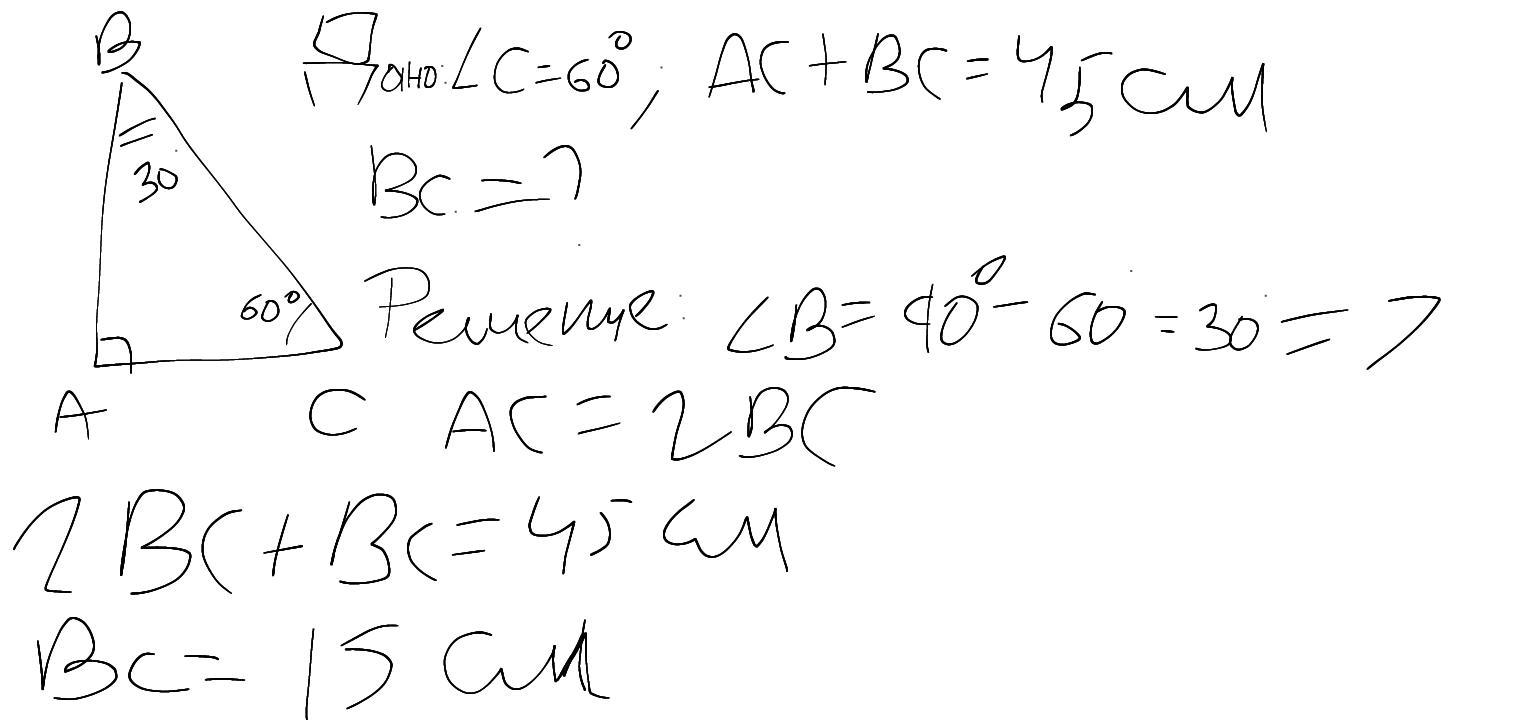 B
Дано: ∠C=60°, AC+BC=45 см
30
BC=?
60°
Решение: ∠B=90°-60=30=>
A C AC=2BC
2BC+BC=45 см
BC=15 см